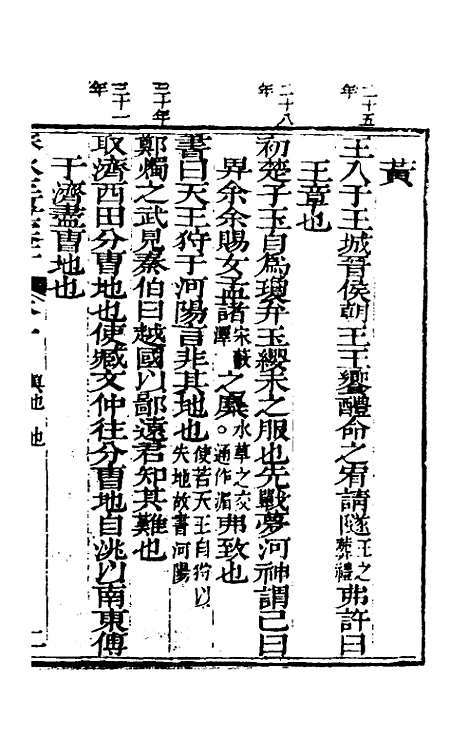 黃
二十五年
王入于王城晉侯朝王王饗醴命之宥請隧王之葬禮弗許曰
王章也
二十八年
初楚子玉自為瓊弁玉纓未之服也先戰夢河神謂己曰
畀余余賜女孟諸宋藪澤之麋水草之交○通作湄弗致也
書曰天王狩于河陽言非其地也使若天王自狩以失地故書河陽
三十年
鄭燭之武見秦伯曰越國以鄙遠君知其難也
三十一年
取濟西田分曹地也使臧文仲往分曹地自洮以南東傅
于濟盡曹地也
地